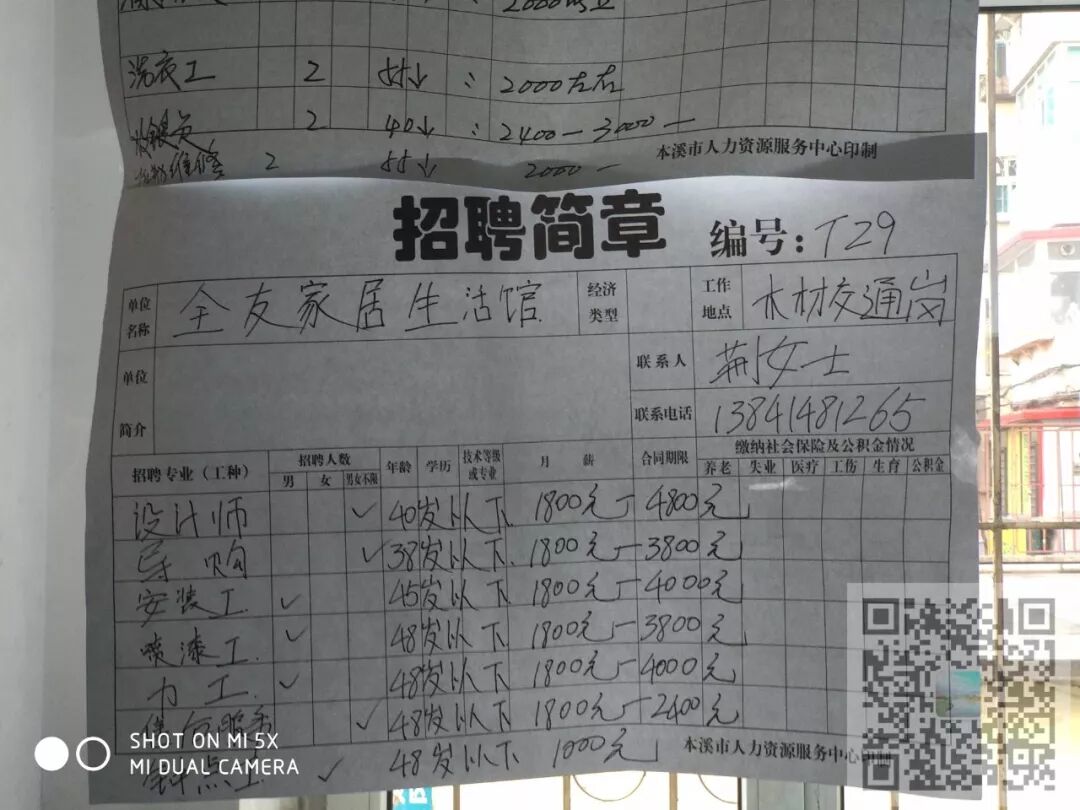 2000
洗衣工 2 55↓ : 2000左右
收银员 2 40↓ : 2400-3000-
维修 2 55↓ 2000-
本溪市人力资源服务中心印制
招聘简章 编号: T29
单位名称 全友家居生活馆 经济类型 工作地点 木材交通岗
单位简介 联系人 荆女士
联系电话 13841481265
招聘专业(工种) 招聘人数 年龄 学历 技术等级或专业 月薪 合同期限 缴纳社会保险及公积金情况
男 女 男女不限 养老 失业 医疗 工伤 生育 公积金
设计师 ✓ 40岁以下 1800元-4800元
导购 ✓ 38岁以下 1800元-3800元
安装工 ✓ 45岁以下 1800元-4000元
喷漆工 ✓ 48岁以下 1800元-3800元
力工 ✓ 48岁以下 1800元-4000元
✓ 48岁以下 1800元-2400元
钟点工 ✓ 48岁以下 1000元
本溪市人力资源服务中心印制
SHOT ON MI 5X
MI DUAL CAMERA